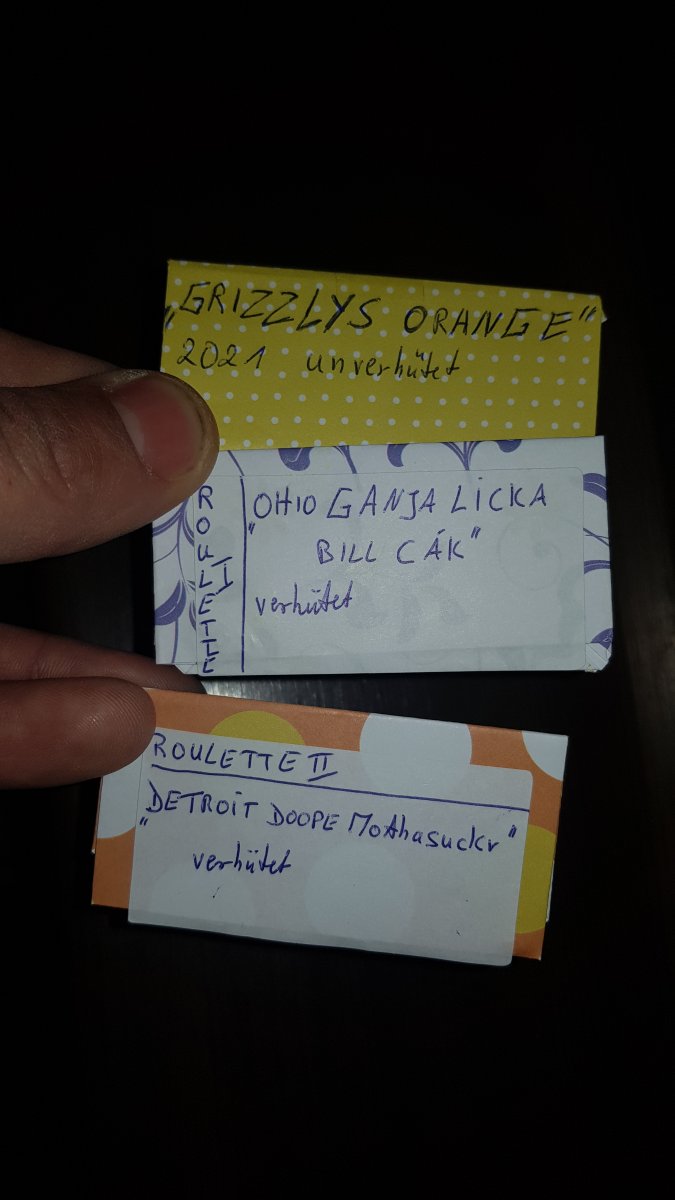 „GRIZZLYS ORANGE"
2021 unverhütet
ROULETTE I
„OHIO GANJA LiCKA
BILL CÁK"
verhütet
ROULETTE II
„DETROiT DOOPE MothasuckR"
verhütet